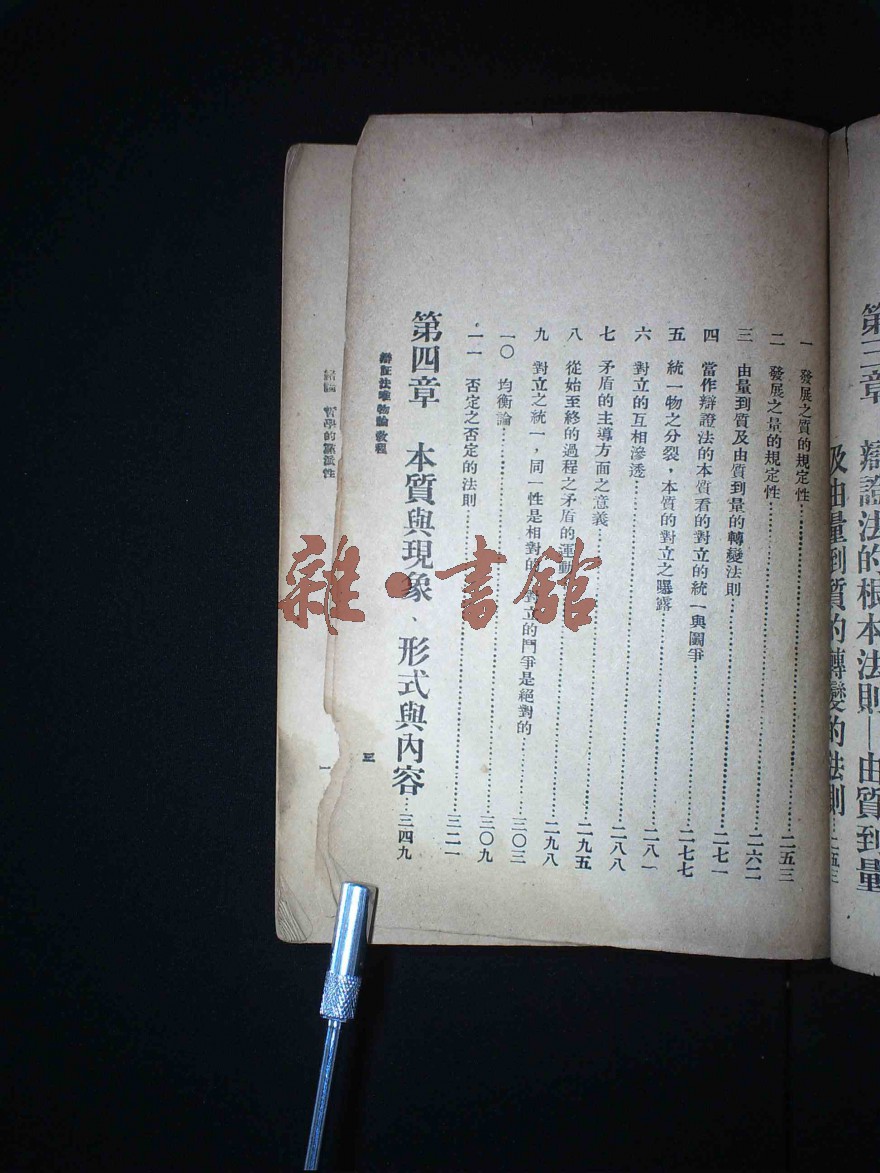 第三章　辯證法的根本法則—由質到量
及由量到質的轉變的法則……二五三
一　發展之質的規定性……二五三
二　發展之量的規定性……二六二
三　由量到質及由質到量的轉變法則……二七一
四　當作辯證法的本質看的對立的統一與鬭爭……二七七
五　統一物之分裂，本質的對立之曝露……二八一
六　對立的互相滲透……二八八
七　矛盾的主導方面之意義……二九五
八　從始至終的過程之矛盾的運動……二九八
九　對立之統一，同一性是相對的，對立的鬥爭是絕對的……三〇三
一〇　均衡論……三〇九
一一　否定之否定的法則……三二一
第四章　本質與現象、形式與內容……三四九
辯証法唯物論教程
三
緒論　哲學的黨派性
一
雜·書館